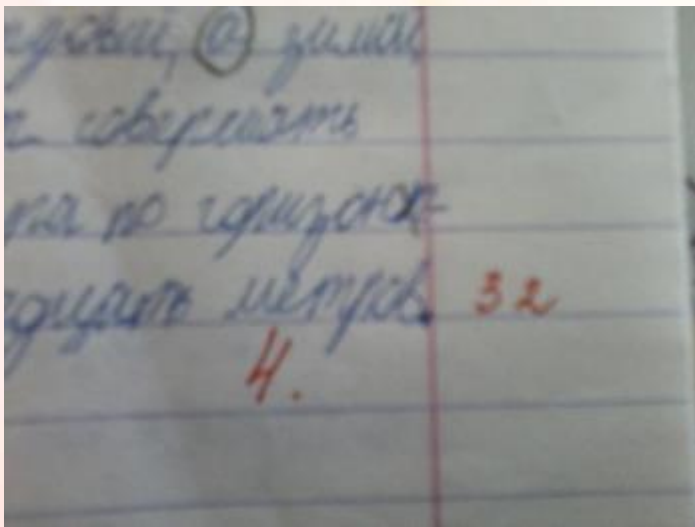 зимой
совершать
по горизон-
дцать метров. 32
4.